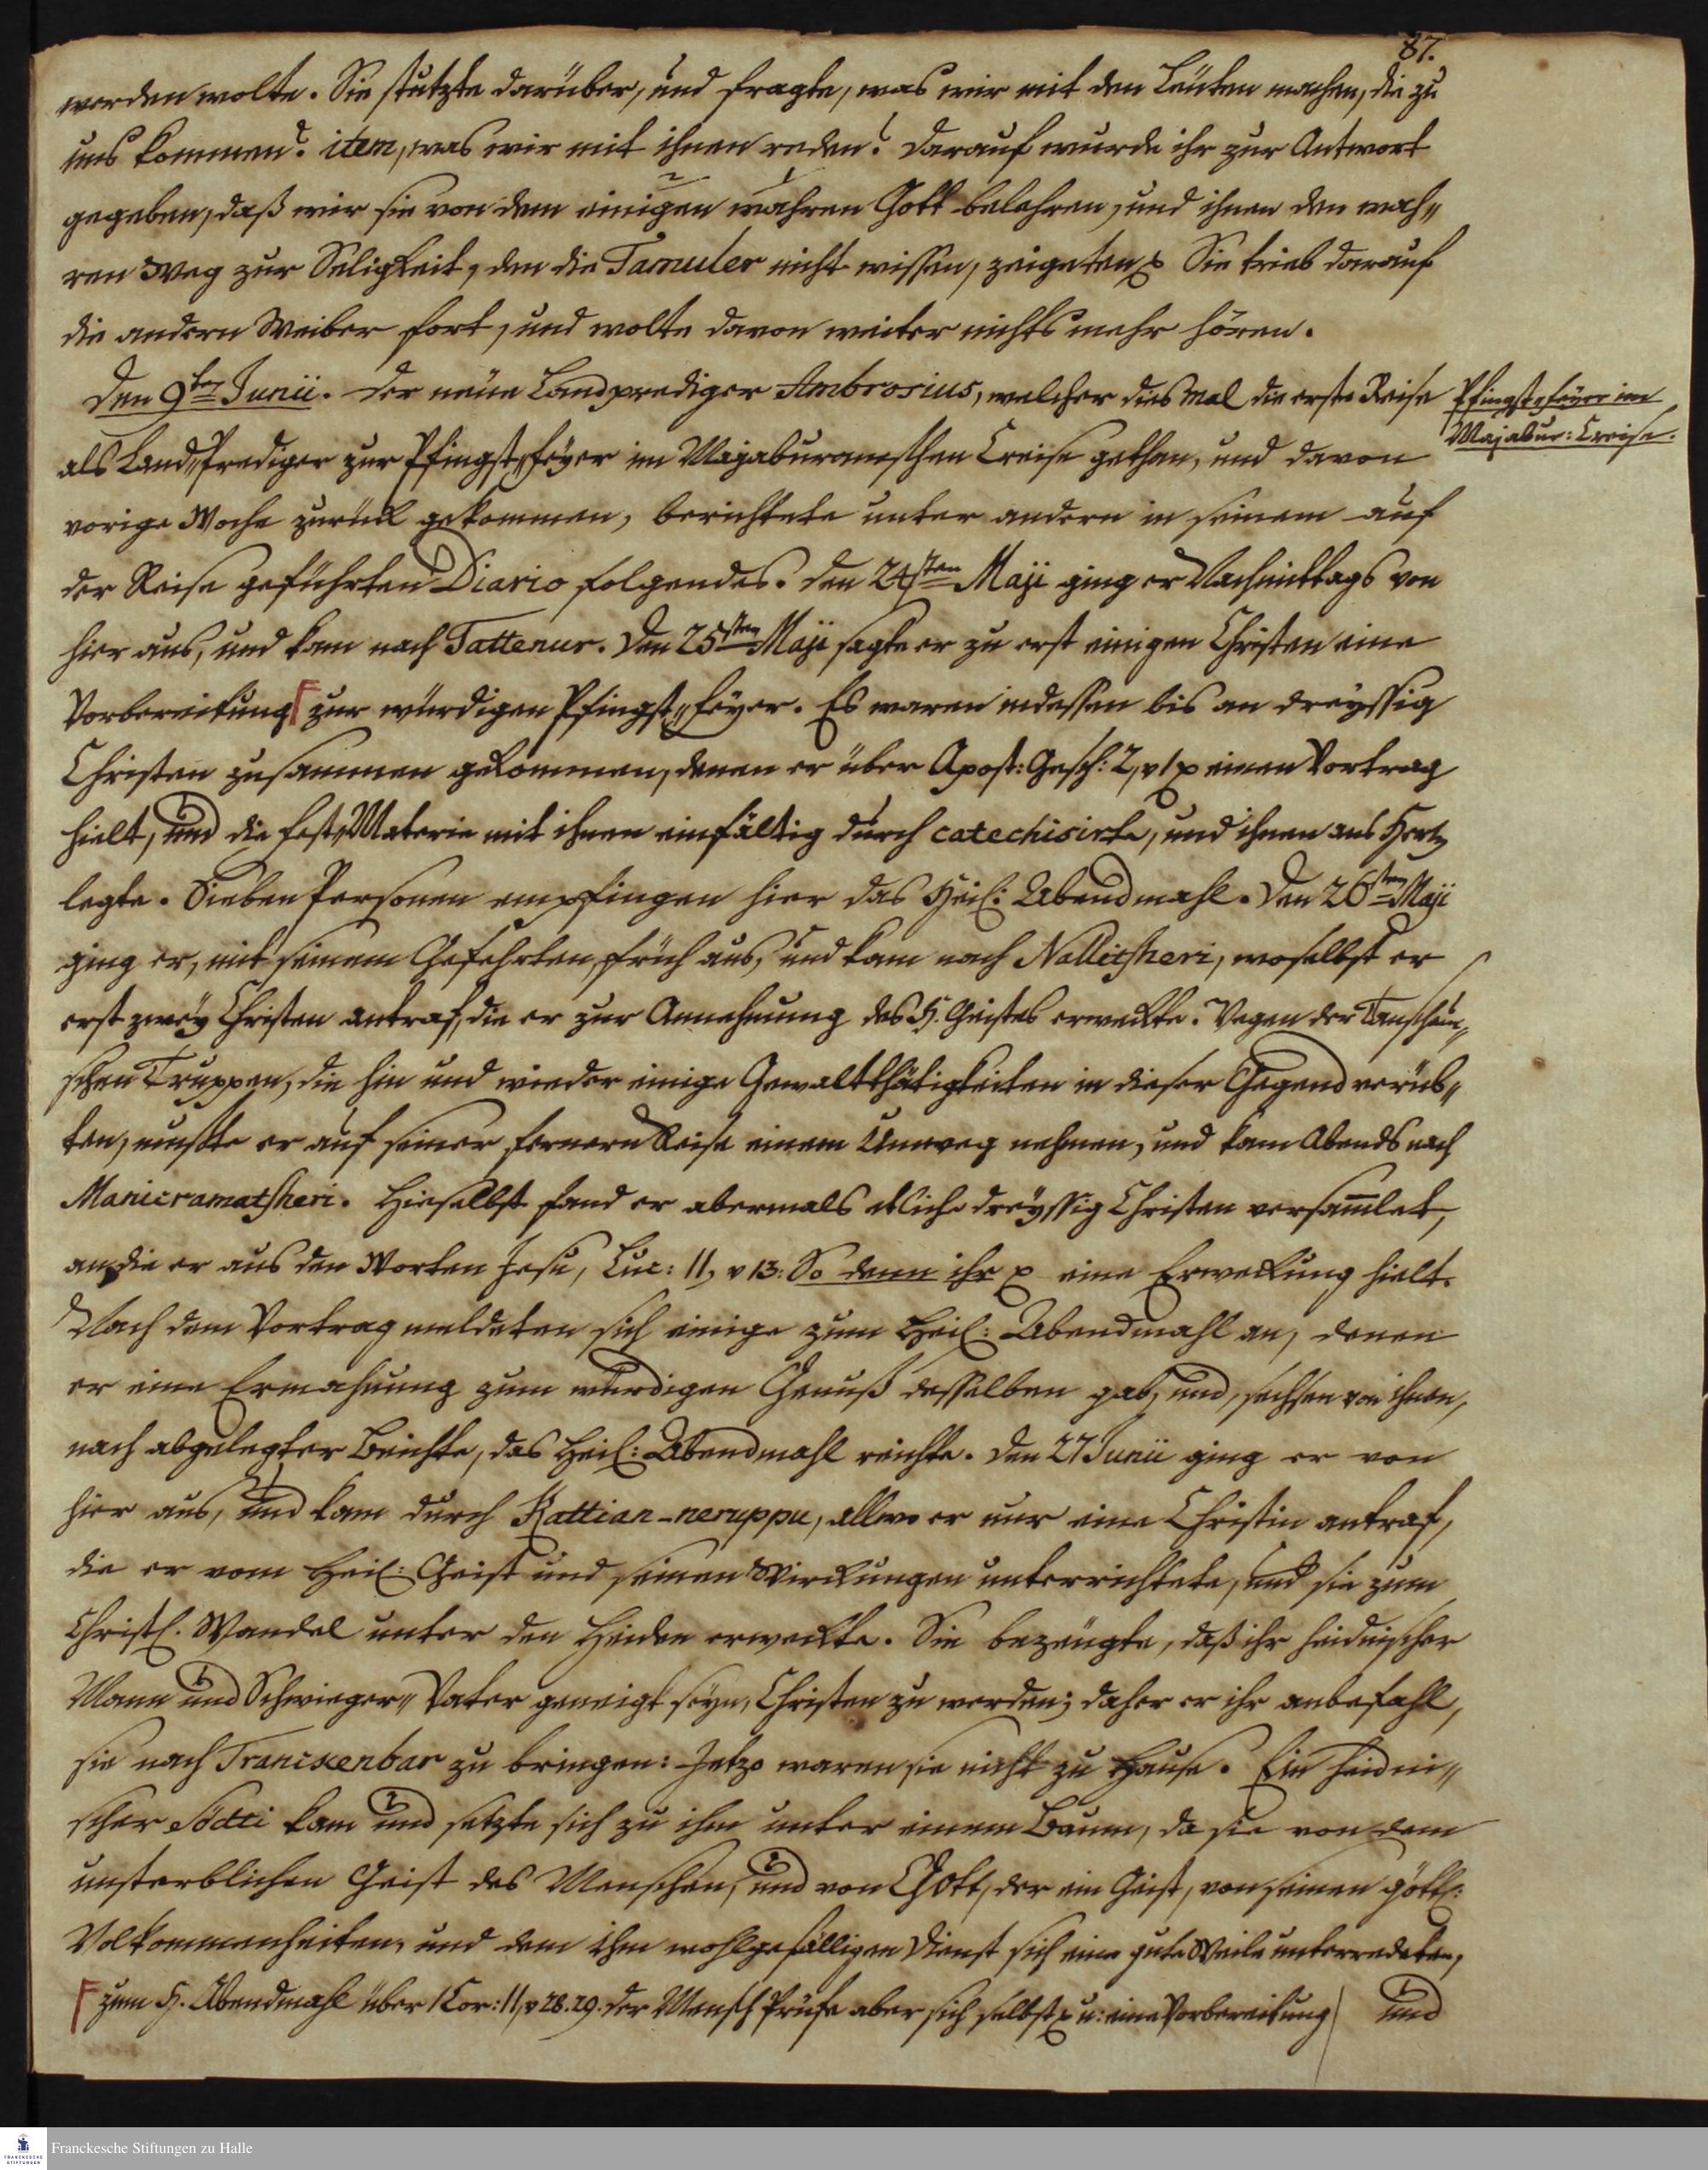 87.
werden wolte. Sie stutzte darüber, und fragte, was wir mit den Leuten machen, die zu
uns kommen? item, was wir mit ihnen reden? Darauf wurde ihr zur Antwort
gegeben, daß wir sie von dem einigen wahren Gott belehren, und ihnen den wah„
ren Weg zur Seligkeit, den die Tamuler nicht wissen, zeigeten p Sie trieb darauf
die andern Weiber fort, und wolte davon weiter nichts mehr hören.
Den 9ten Junii. Der neue Landprediger Ambrosius, welcher dies mal die erste Reise
Pfingst„feyer im
Majabur: Creise.
als Land„Prediger zur Pfingst„feyer im Majaburamschen Creise gethan, und davon
vorige Woche zurück gekommen, berichtete unter andern in seinem auf
der Reise geführten Diario folgendes. Den 24sten Maji ging er Nachmittags von
hier aus, und kam nach Tattenur. Den 25sten Maji sagte er zu erst einigen Christen eine
Vorbereitung zur würdigen Pfingst„feyer. Es waren indessen bis an dreyssig
Christen zusammen gekommen, denen er über Apost: Gesch: 2, v 1 p einen Vortrag
hielt, und die fest„Materie mit ihnen einfältig durch catechisirte, und ihnen ans Hertz
legte. Sieben Personen empfingen hier das Heil: Abendmahl. Den 26sten Maji
ging er, mit seinem Gefehrten, früh aus, und kam nach Nallitsheri, woselbst er
erst zwey Christen antraf, die er zur Annehmung des H. Geistes erweckte. Wegen der Tanschau„
schen Truppen, die hin und wieder einige Gewaltthätigkeiten in dieser Gegend verüb„
ten, muste er auf seiner fernern Reise einem Umweg nehmen, und kam Abends nach
Manicramatsheri. Hieselbst fand er abermals etliche dreyssig Christen versamlet,
an die er aus den Worten Jesu, Luc: 11, v 13: So denn ihr p eine Erweckung hielt.
Nach dem Vortrag meldeten sich einige zum Heil: Abendmahl an, denen
er eine Ermahnung zum würdigen Genuß desselben gab, und, sechsen von ihnen,
nach abgelegter Beichte, das Heil: Abendmahl reichte. Den 27 Junii ging er von
hier aus, und kam durch Kattian-neruppu, allwo er nur eine Christin antraf,
die er vom Heil: Geist und seinen Wirckungen unterrichtete, und sie zum
Christl. Wandel unter den Heiden erweckte. Sie bezeugte, daß ihr heidnischer
Mann und Schwieger„Vater geneigt seyn, Christen zu werden; daher er ihr anbefahl,
sie nach Tranckenbar zu bringen: Jetzo waren sie nicht zu Hause. Ein heidni„
scher Södti kam und setzte sich zu ihm unter einem Baum, da sie von dem
unsterblichen Geist des Menschen, und von Gott, der ein Geist, von seinen göttl:
Volkommenheiten, und dem ihm wohlgefälligen Dienst sich eine gute Weile unterredeten,
zum H. Abendmahl über 1 Cor: 11, v 28. 29. Der Mensch Prüfe aber sich selbst p u: eine Vorbereitung
und
Franckesche Stiftungen zu Halle